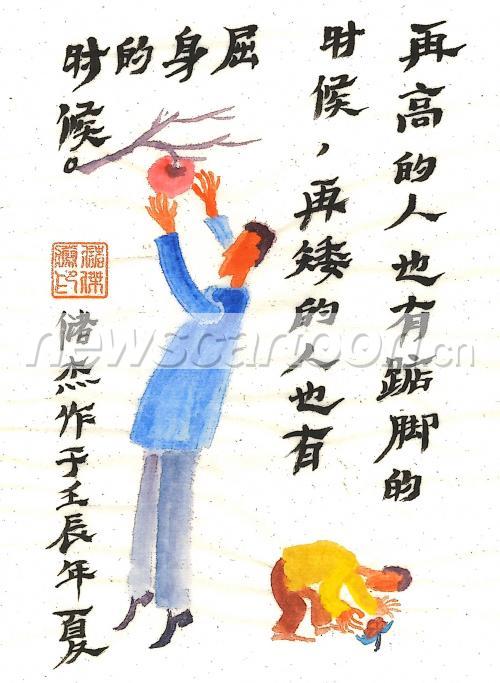 再高的人也有踮脚的
时候，再矮的人也有
屈身的时候。
储杰作于壬辰年夏
newscartoon.cn